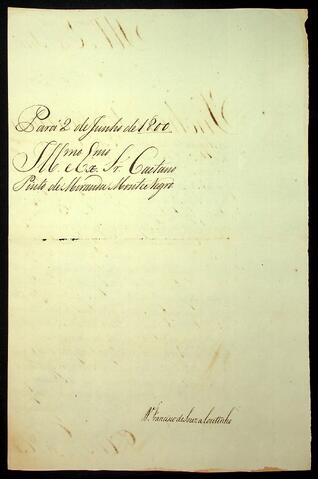 Pará 2 de Junho de 1800.
Illmo e Exmo Sr. Caetano
Pinto de Miranda Montenegro
D. Francisco de Souza Coutinho